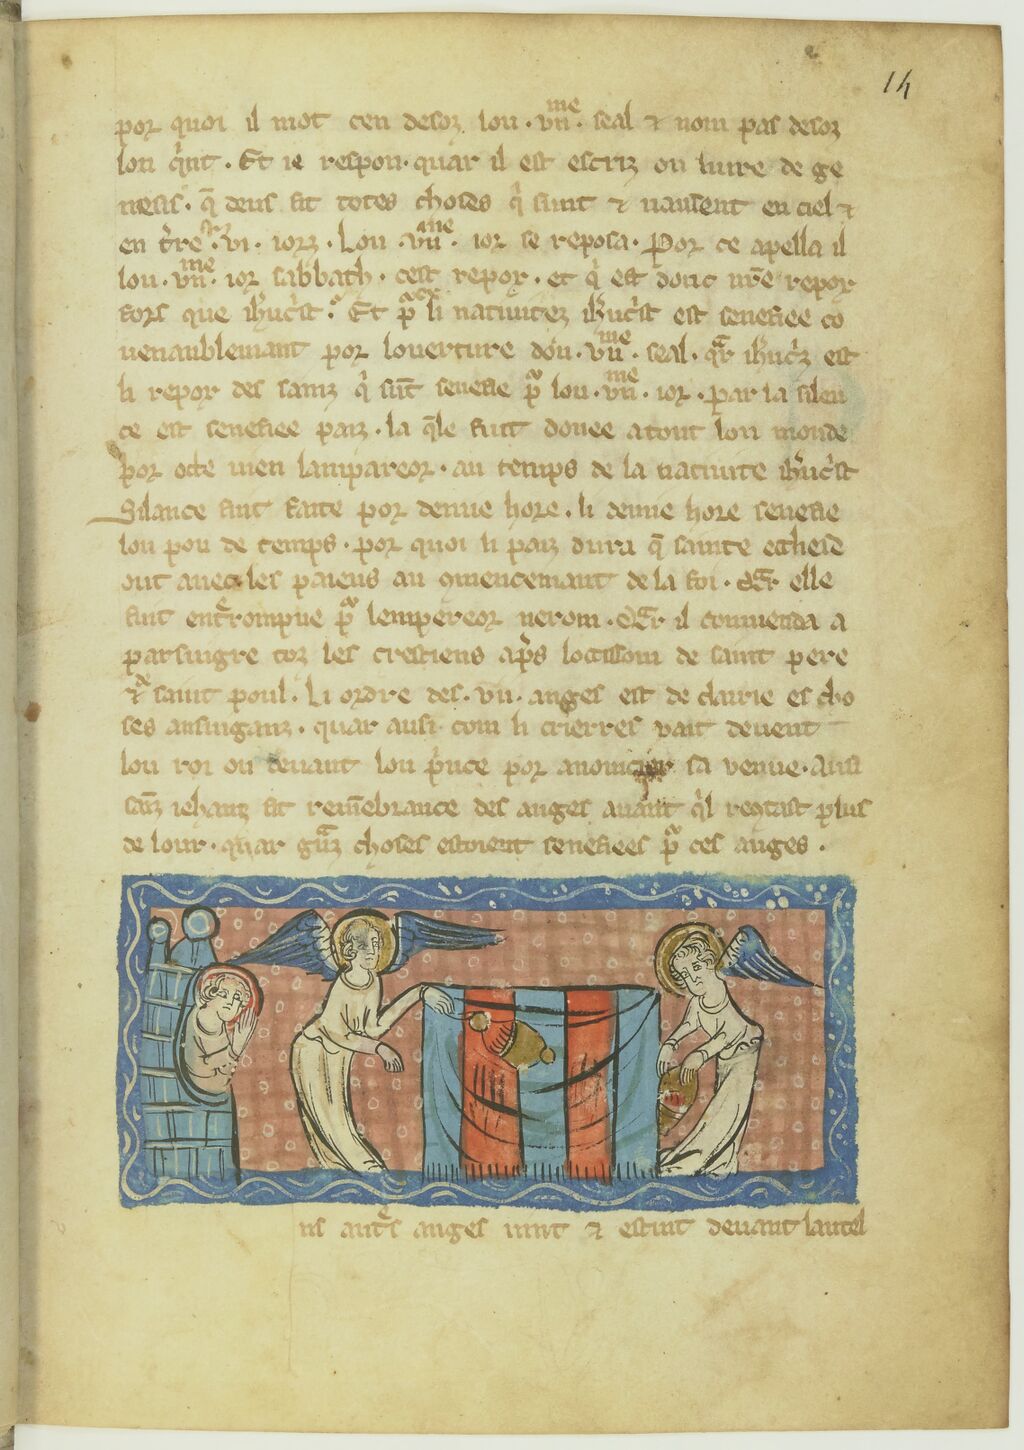 14
por quoi il mot cen desoz lou .vii.me seal ⁊ nom pas desoz
lou q̾int . Et ie respon . quar il est escriz ou liure de ge
nesis . q̄ deus fit totes choses q̾ sunt ⁊ uausent en ciel ⁊
en t̾re . vi . iorz . Lou .vii.me ior se reposa . Por ce apella il
lou .vii.me ior sabbath . cest repor . et q̾ est donc nr̄e repor
fors que ih'uc̾st . Et p̾ li natiuitez ih'uc̾st est senefiee co
uenaublemant por louerture dou .vii.me seal . q̾r ih'uc̾z est
li repor des sainz q̾ sūt senefie p̾ lou .vii.me ior . par la silen
ce est senefiee paiz . la q̄le fuit donee a tout lou monde
por octe uien lampareor . au temps de la natiuite ih'uc̾st
Silance fuit faite por demie hore . li demie hore senefie
lou pou de temps . por quoi li paiz dura q̄ sainte eclhese
out auec les paiens au 9mencemant de la foi . q̾r elle
fuit ent̾rompue p̾ lempereor nerom . q̾r il commenda a
parsuigre toz les crestiens ap̾s locission de saint pere
⁊ saint poul . Li ordre des .vii. anges est declairie es cho
ses ansiuganz . quar ausi com li crierres vait deuent
lou roi ou deuant lou p̾nce por anoncier sa venue . Ausi
sainz iehanz fit remēbrance des anges auant q̾l re9tast plus
de lour . quar g̾nz choses estoient senefiees p̾ ces anges .
ns aut̾s anges uint ⁊ estiut deuant lautel